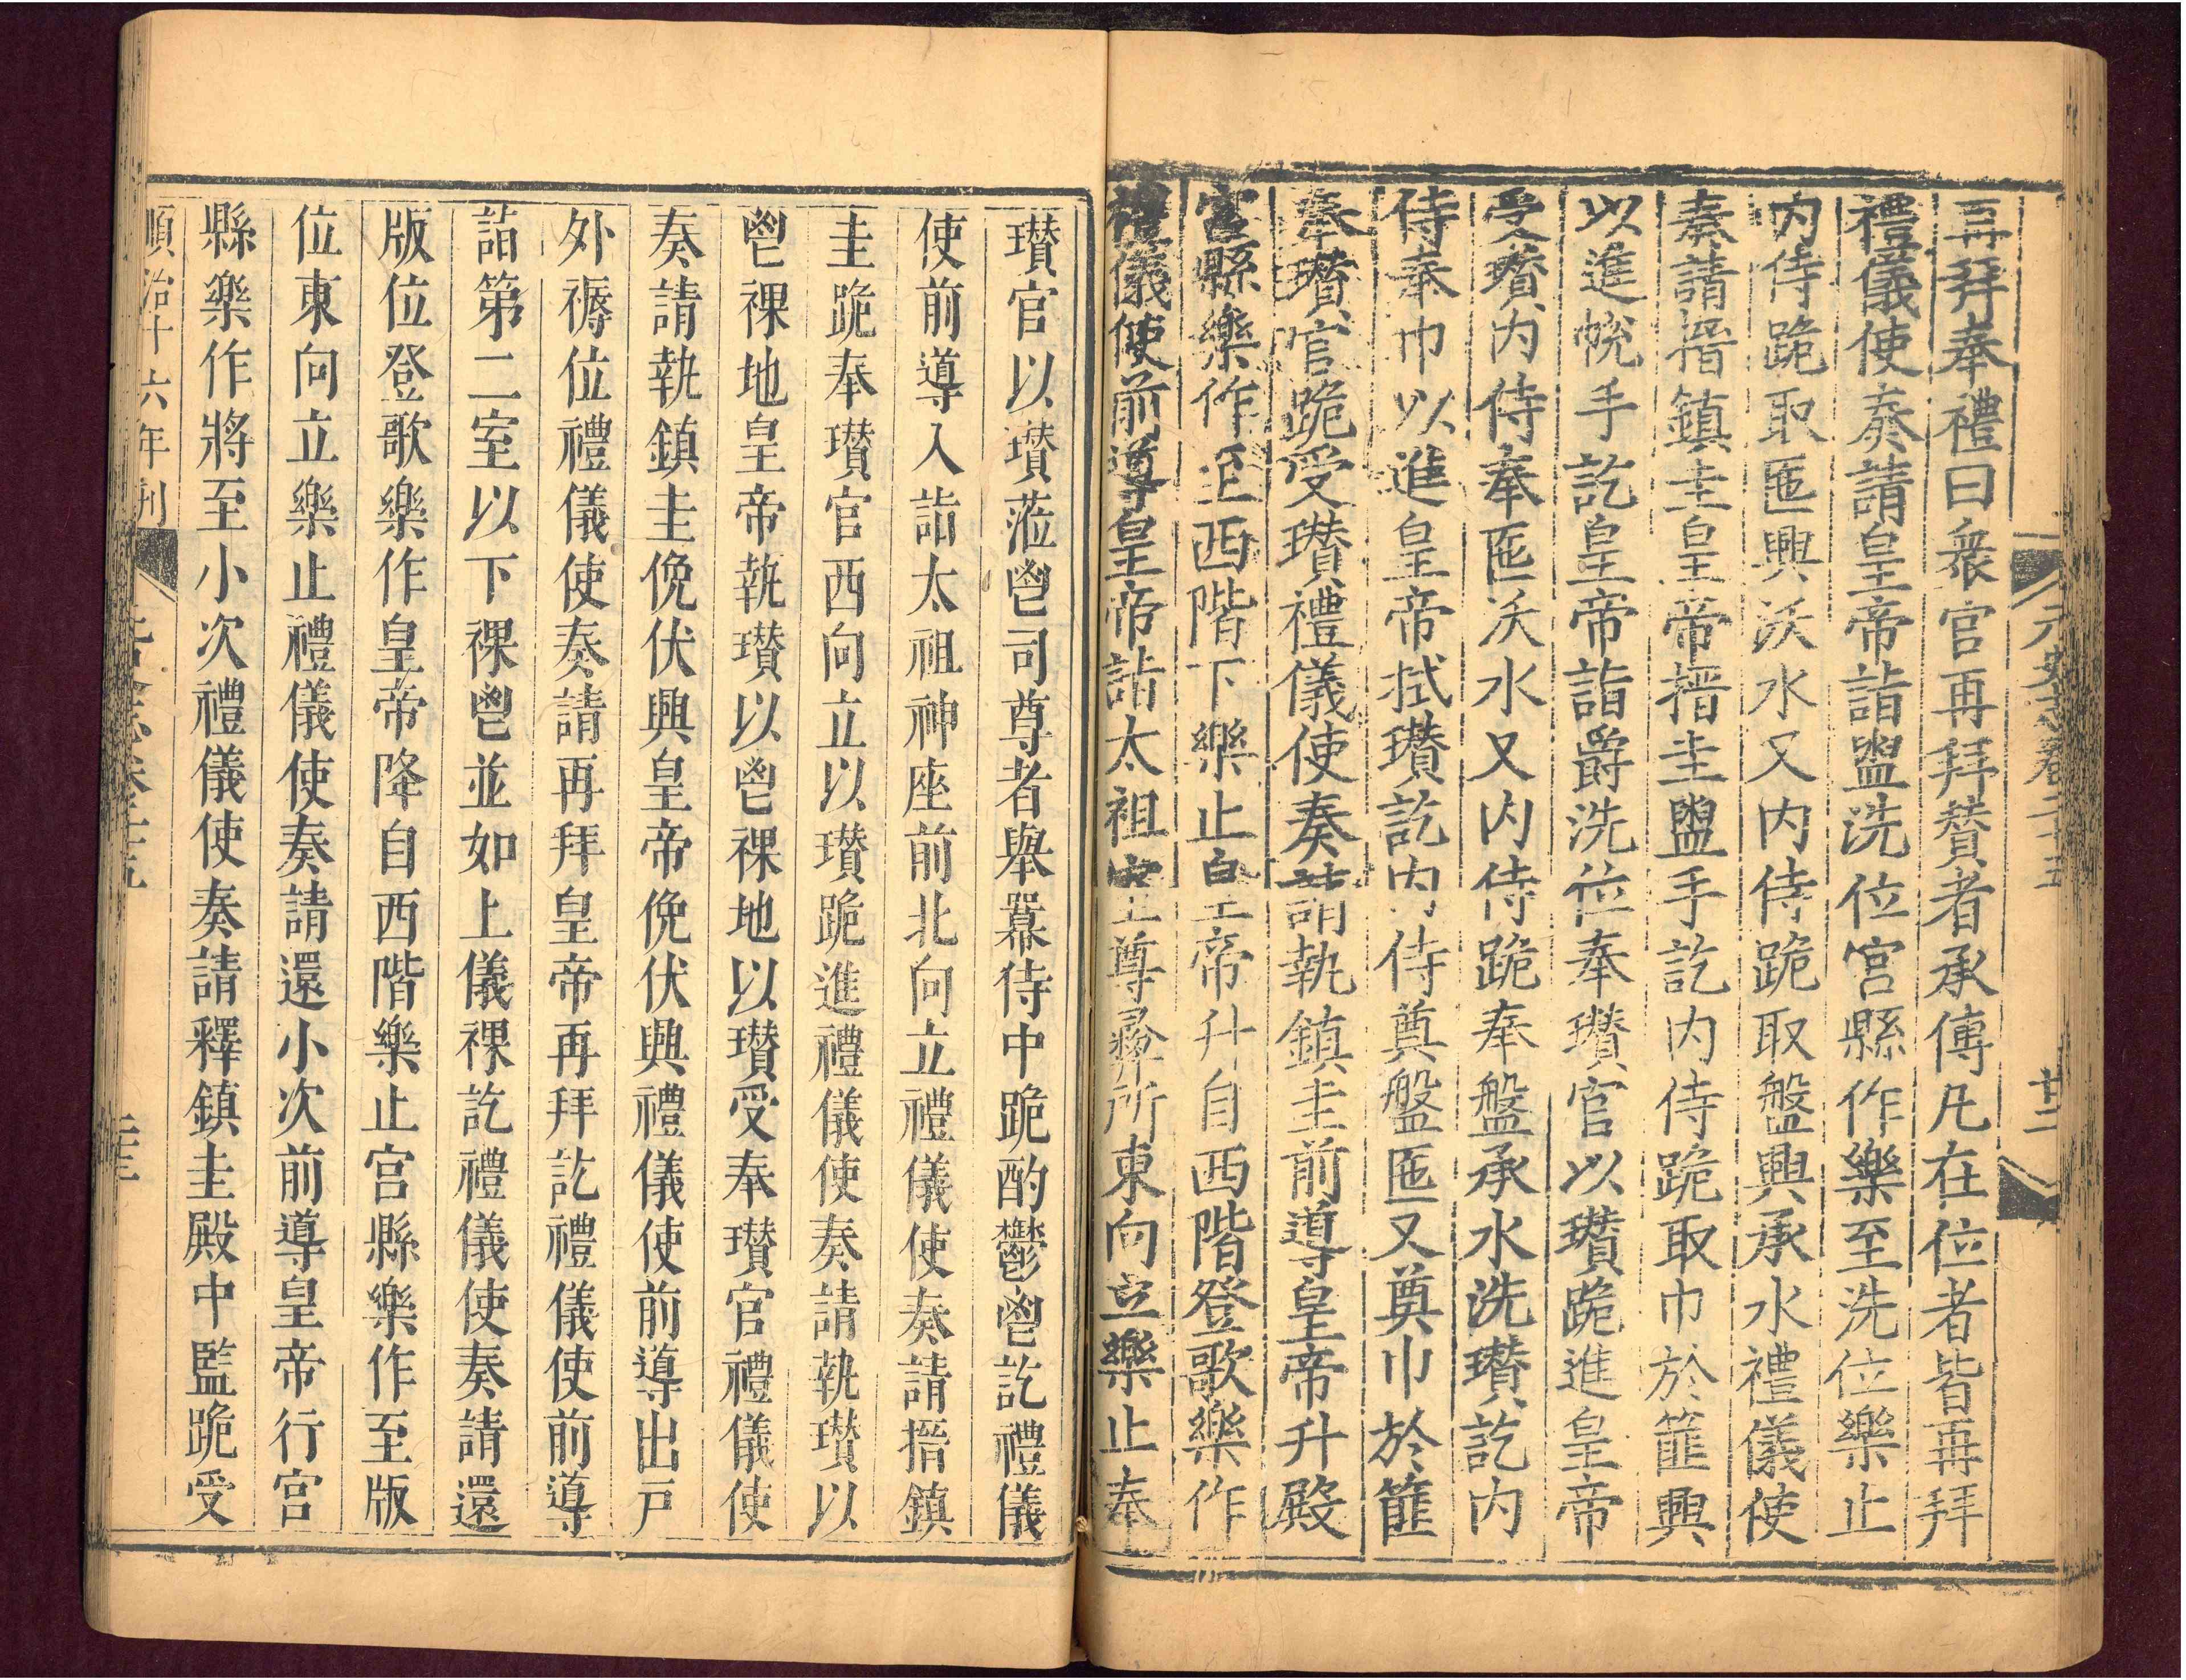 元史志卷二十五
廿二
再拜奉禮曰衆官再拜贊者承傳凡在位者皆再拜
禮儀使奏請皇帝詣盥洗位宮縣作樂至洗位樂止
内侍跪取匜興沃水又内侍跪取盤興承水禮儀使
奏請搢鎮圭皇帝搢圭盥手訖内侍跪取巾於篚興
以進帨手訖皇帝詣爵洗位奉瓚官以瓚跪進皇帝
受瓚内侍奉匜沃水又内侍跪奉盤承水洗瓚訖内
侍奉巾以進皇帝拭瓚訖内侍奠盤匜又奠巾於篚
奉瓚官跪受瓚禮儀使奏請執鎮圭前導皇帝升殿
宮縣樂作至西階下樂止皇帝升自西階登歌樂作
禮儀使前導皇帝詣太祖室尊彛所東向立樂止奉
瓚官以瓚蒞鬯司尊者舉羃侍中跪酌鬱鬯訖禮儀
使前導入詣太祖神座前北向立禮儀使奏請搢鎮
圭跪奉瓚官西向立以瓚跪進禮儀使奏請執瓚以
鬯祼地皇帝執瓚以鬯祼地以瓚受奉瓚官禮儀使
奏請執鎮圭俛伏興皇帝俛伏興禮儀使前導出戸
外褥位禮儀使奏請再拜皇帝再拜訖禮儀使前導
詣第二室以下祼鬯並如上儀祼訖禮儀使奏請還
版位登歌樂作皇帝降自西階樂止宮縣樂作至版
位東向立樂止禮儀使奏請還小次前導皇帝行宮
縣樂作將至小次禮儀使奏請釋鎮圭殿中監跪受
順治十六年刊